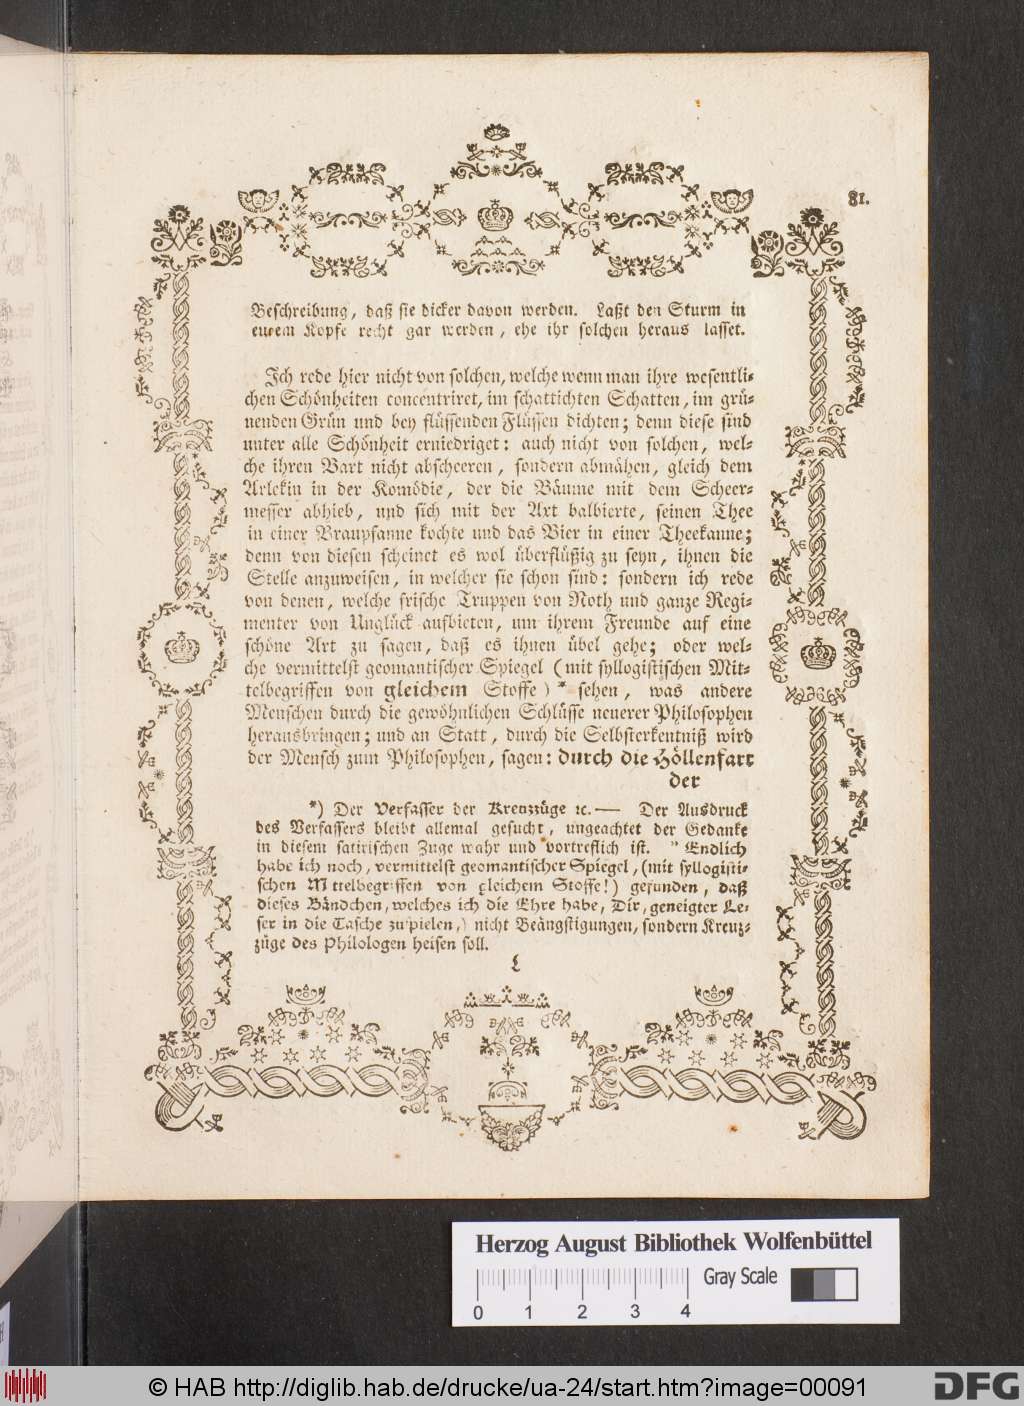 81.
Beschreibung, daß sie dicker davon werden. Laßt den Sturm in
eurem Kopfe recht gar werden, ehe ihr solchen heraus lasset.
Ich rede hier nicht von solchen, welche wenn man ihre wesentli-
chen Schönheiten concentriret, im schattichten Schatten, im grü-
nenden Grün und bey flüssenden Flüssen dichten; denn diese sind
unter alle Schönheit erniedriget: auch nicht von solchen, wel-
che ihren Bart nicht abscheeren, sondern abmähen, gleich dem
Arlekin in der Komödie, der die Bäume mit dem Scheer-
messer abhieb, und sich mit der Axt balbierte, seinen Thee
in einer Braupfanne kochte und das Bier in einer Theekanne;
denn von diesen scheinet es wol überflüßig zu seyn, ihnen die
Stelle anzuweisen, in welcher sie schon sind: sondern ich rede
von denen, welche frische Truppen von Noth und ganze Regi-
menter von Unglück aufbieten, um ihrem Freunde auf eine
schöne Art zu sagen, daß es ihnen übel gehe; oder wel-
che vermittelst geomantischer Spiegel (mit syllogistischen Mit-
telbegriffen von gleichem Stoffe) * sehen, was andere
Menschen durch die gewöhnlichen Schlüsse neuerer Philosophen
herausbringen; und an Statt, durch die Selbsterkentniß wird
der Mensch zum Philosophen, sagen: durch die Höllenfart
der
*) Der Verfasser der Kreuzzüge ꝛc. — Der Ausdruck
des Verfassers bleibt allemal gesucht, ungeachtet der Gedanke
in diesem satirischen Zuge wahr und vortreflich ist. "Endlich
habe ich noch, vermittelst geomantischer Spiegel, (mit syllogisti-
schen Mittelbegriffen von gleichem Stoffe!) gefunden, daß
dieses Bändchen, welches ich die Ehre habe, Dir, geneigter Le-
ser in die Tasche zu spielen,) nicht Beängstigungen, sondern Kreuz-
züge des Philologen heisen soll.
L
Herzog August Bibliothek Wolfenbüttel
Gray Scale
0 1 2 3 4
© HAB http://diglib.hab.de/drucke/ua-24/start.htm?image=00091
DFG